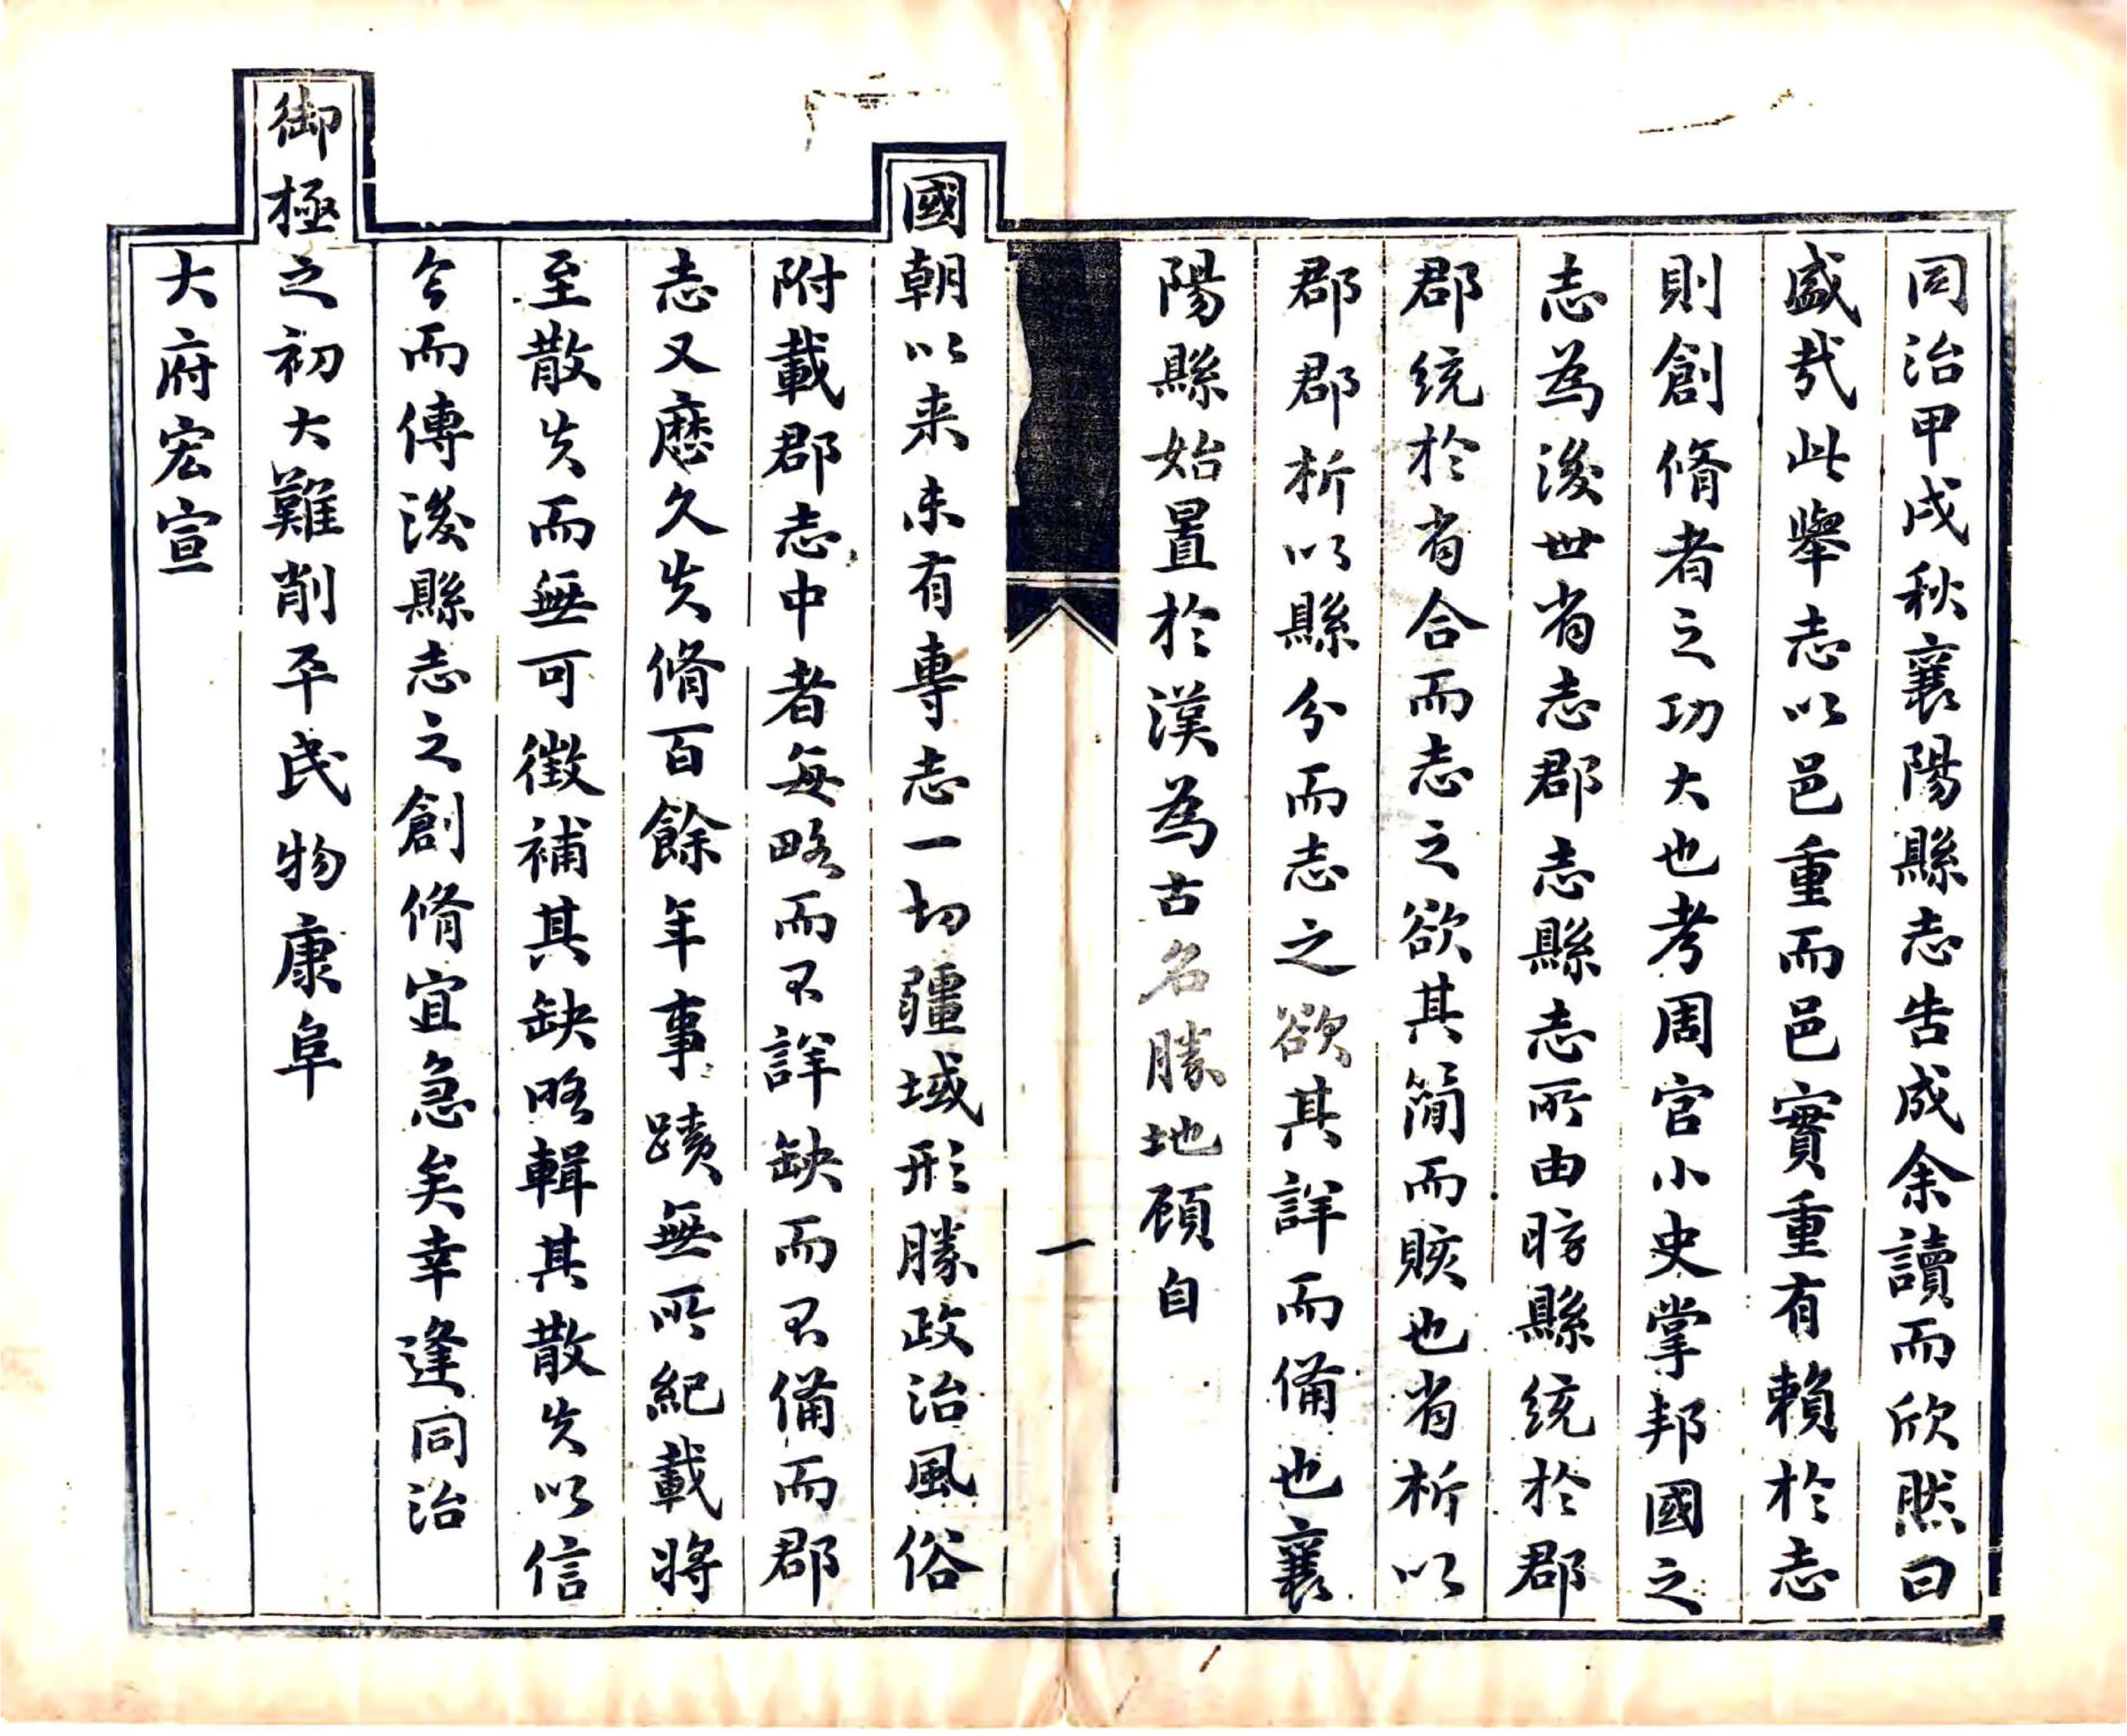 同治甲戌秋襄陽縣志告成余讀而欣然曰
盛哉此舉志以邑重而邑實重有賴於志
則創脩者之功大也考周官小史掌邦國之
志為後世省志郡志縣志所由昉縣統於郡
郡統於省合而志之欲其簡而賅也省析以
郡郡析以縣分而志之欲其詳而備也襄
陽縣始置於漢為古名勝地顧自
一
國朝以來未有專志一切疆域形勝政治風俗
附載郡志中者每略而不詳缺而不備而郡
志又歷久失脩百餘年事蹟無所紀載將
至散失而無可徵補其缺略輯其散失以信
今而傳後縣志之創脩宜急矣幸逢同治
御極之初大難削平民物康阜
大府宏宣